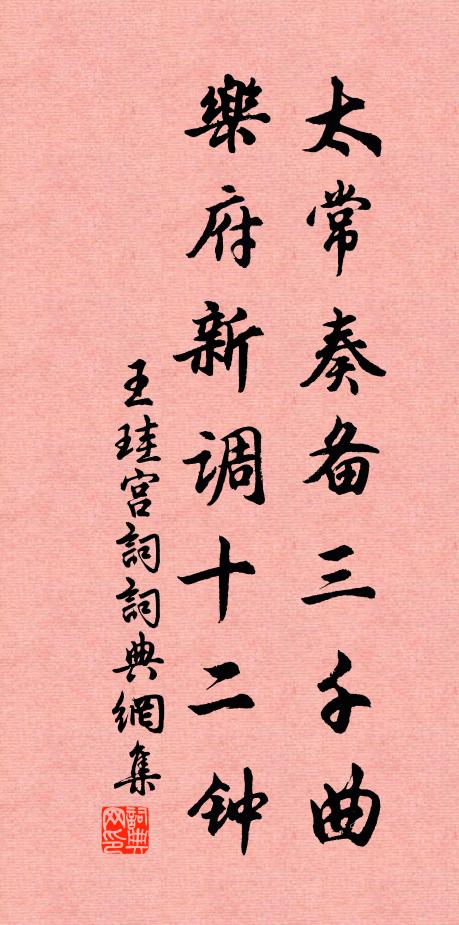 太常奏备三千曲
樂府新调十二钟
王珪宫詞詞典網集
詞典网印